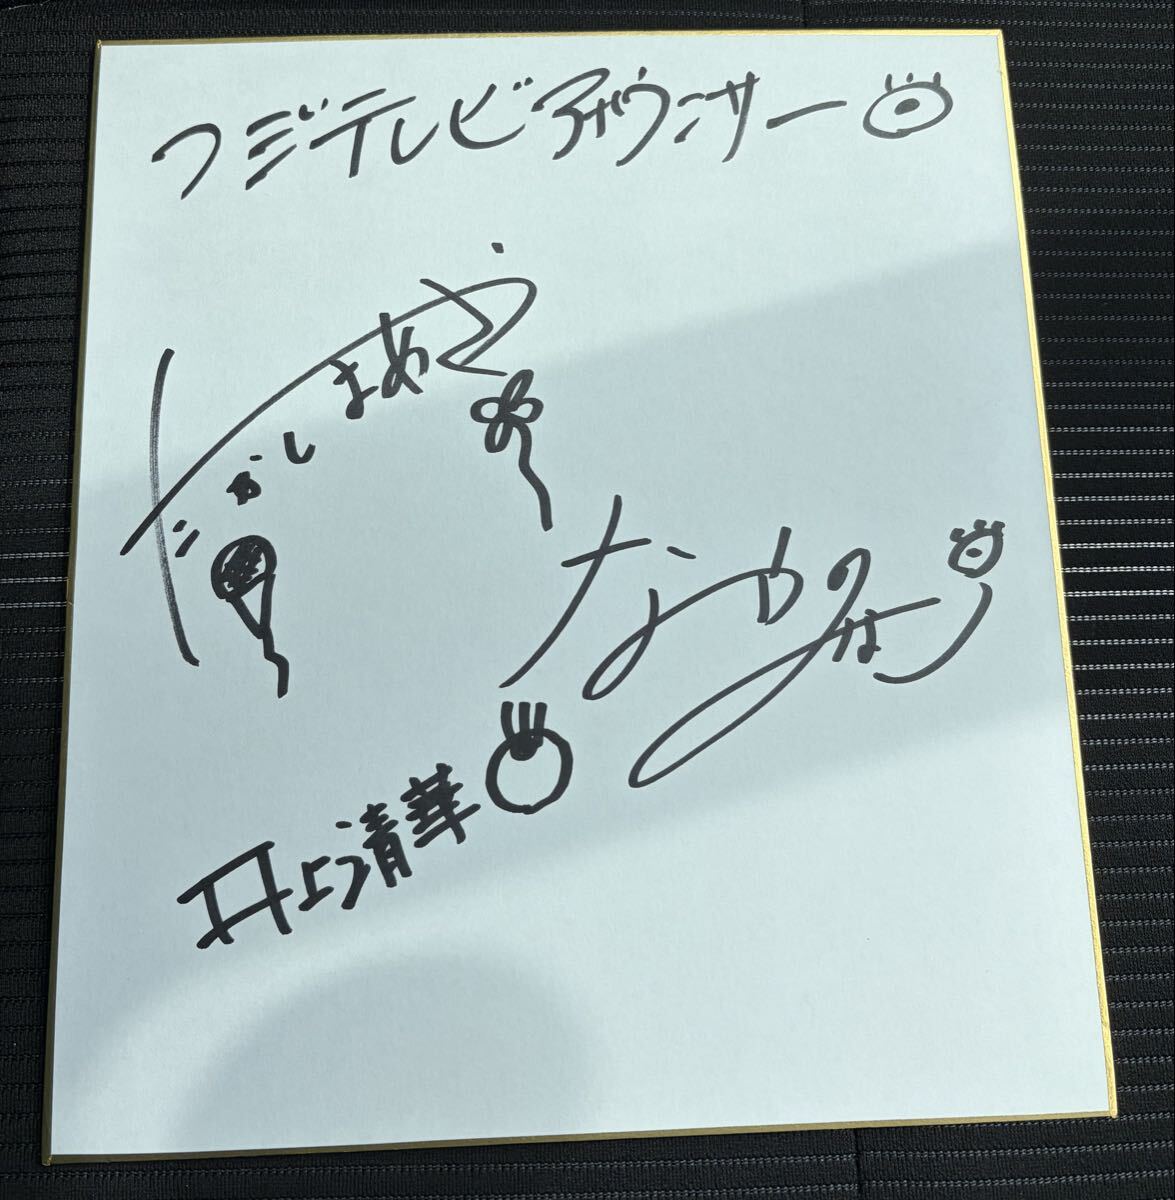 フジテレビアナウンサー
ながしまあさ
なかのなほ
井上清華